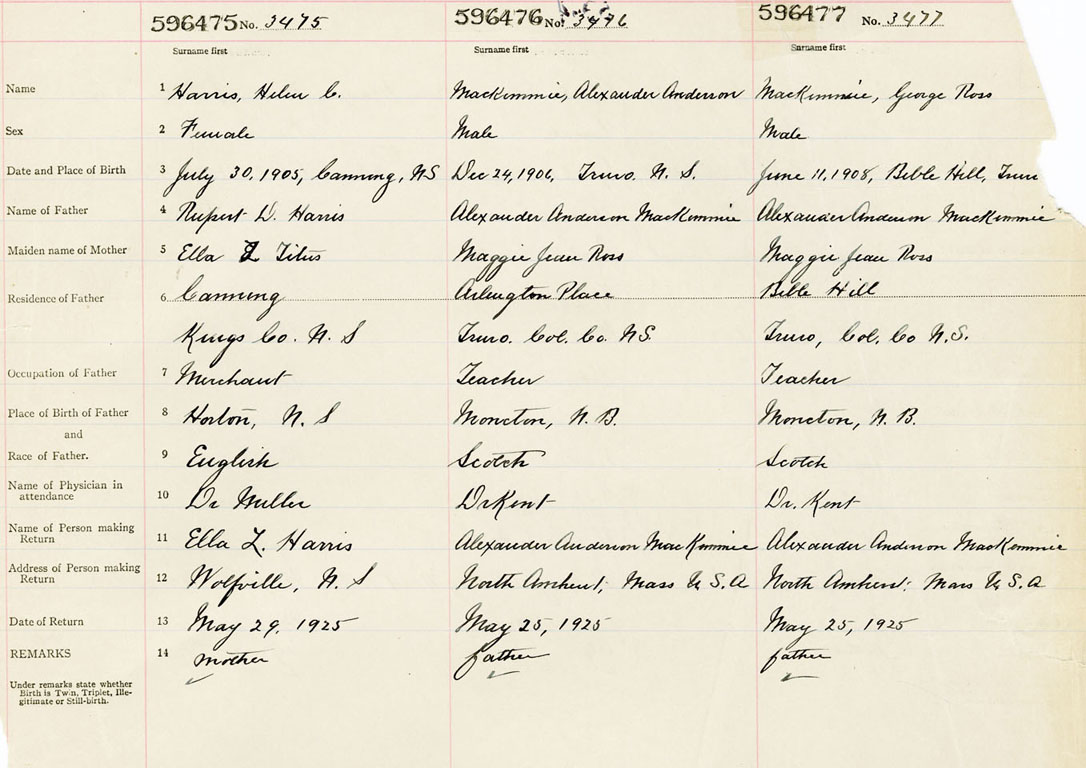 596475 No. 3475 596476 No. 3476 596477 No. 3477
Surname first Surname first Surname first
Name 1 Harris, Helen C. MacKimmie, Alexander Anderson MacKimmie, George Ross
Sex 2 Female Male Male
Date and Place of Birth 3 July 30, 1905, Canning, NS Dec 24, 1906, Truro. N. S. June 11, 1908, Bible Hill, Truro
Name of Father 4 Rupert D. Harris Alexander Anderson MacKimmie Alexander Anderson MacKimmie
Maiden name of Mother 5 Ella L Titus Maggie Jean Ross Maggie Jean Ross
Residence of Father 6 Canning Arlington Place Bible Hill
Kings Co. N. S Truro. Col. Co. NS. Truro, Col. Co N.S.
Occupation of Father 7 Merchant Teacher Teacher
Place of Birth of Father 8 Horton, N. S Moncton, N. B. Moncton, N. B.
and
Race of Father. 9 English Scotch Scotch
Name of Physician in
attendance 10 Dr Miller Dr Kent Dr. Kent
Name of Person making
Return 11 Ella L. Harris Alexander Anderson MacKimmie Alexander Anderson MacKimmie
Address of Person making
Return 12 Wolfville, N. S North Amherst, Mass U.S.A North Amherst, Mass U.S.A
Date of Return 13 May 29, 1925 May 25, 1925 May 25, 1925
REMARKS 14 mother father father
Under remarks state whether
Birth is Twin, Triplet, Ille-
gitimate or Still-birth.